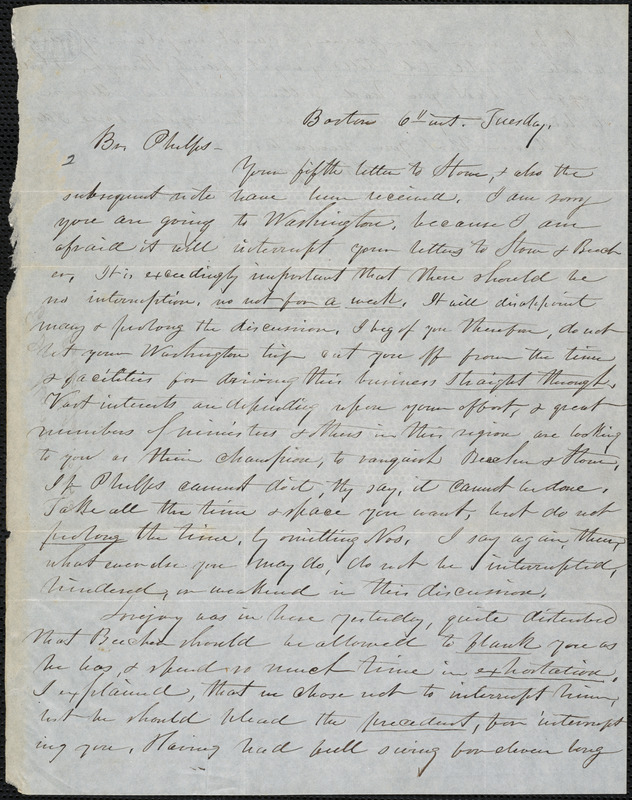 Boston 6th inst. Tuesday.
Bro Phelps—
2
Your fifth letter to Stowe, & also the
subsequent note have been received. I am sorry
you are going to Washington, because I am
afraid it will interrupt your letters to Stowe & Beech
er. It is exceedingly important that there should be
no interruption, no not for a week. It will disappoint
many & prolong the discussion. I beg of you therefore, do not
let your Washington trip cut you off from the time
& facilities for driving this business straight through.
Vast interests are depending upon your effort, & great
numbers of ministers & others in this region are looking
to you as their champion, to vanquish Beecher & Stowe.
If Phelps cannot do it, they say, it cannot be done.
Take all the time & space you want, but do not
prolong the time, by omitting Nos. I say again, then,
what ever else you may do, do not be interrupted,
hindered, or weakened in this discussion.
Lovejoy was in here yesterday, quite disturbed
that Beecher should be allowed to flank you as
he has, & spend so much time in exhortation.
I explained, that we chose not to interrupt him,
lest he should plead the precedent, for interrupt
ing you. Having had full swing for eleven long